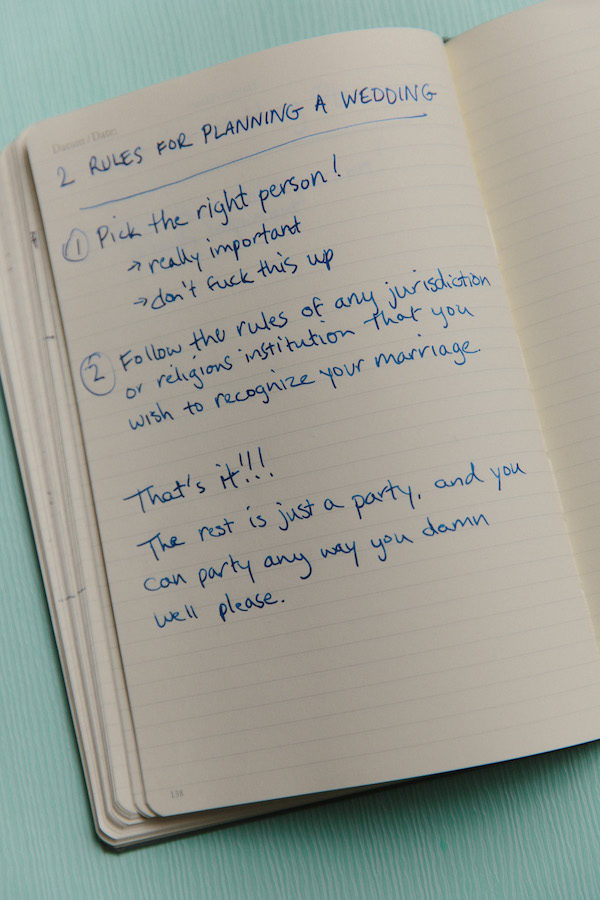 Datum / Date:
2 RULES FOR PLANNING A WEDDING
① Pick the right person!
→ really important
→ don't fuck this up
② Follow the rules of any jurisdiction
or religious institution that you
wish to recognize your marriage
That's it!!!
The rest is just a party, and you
can party any way you damn
well please.
138